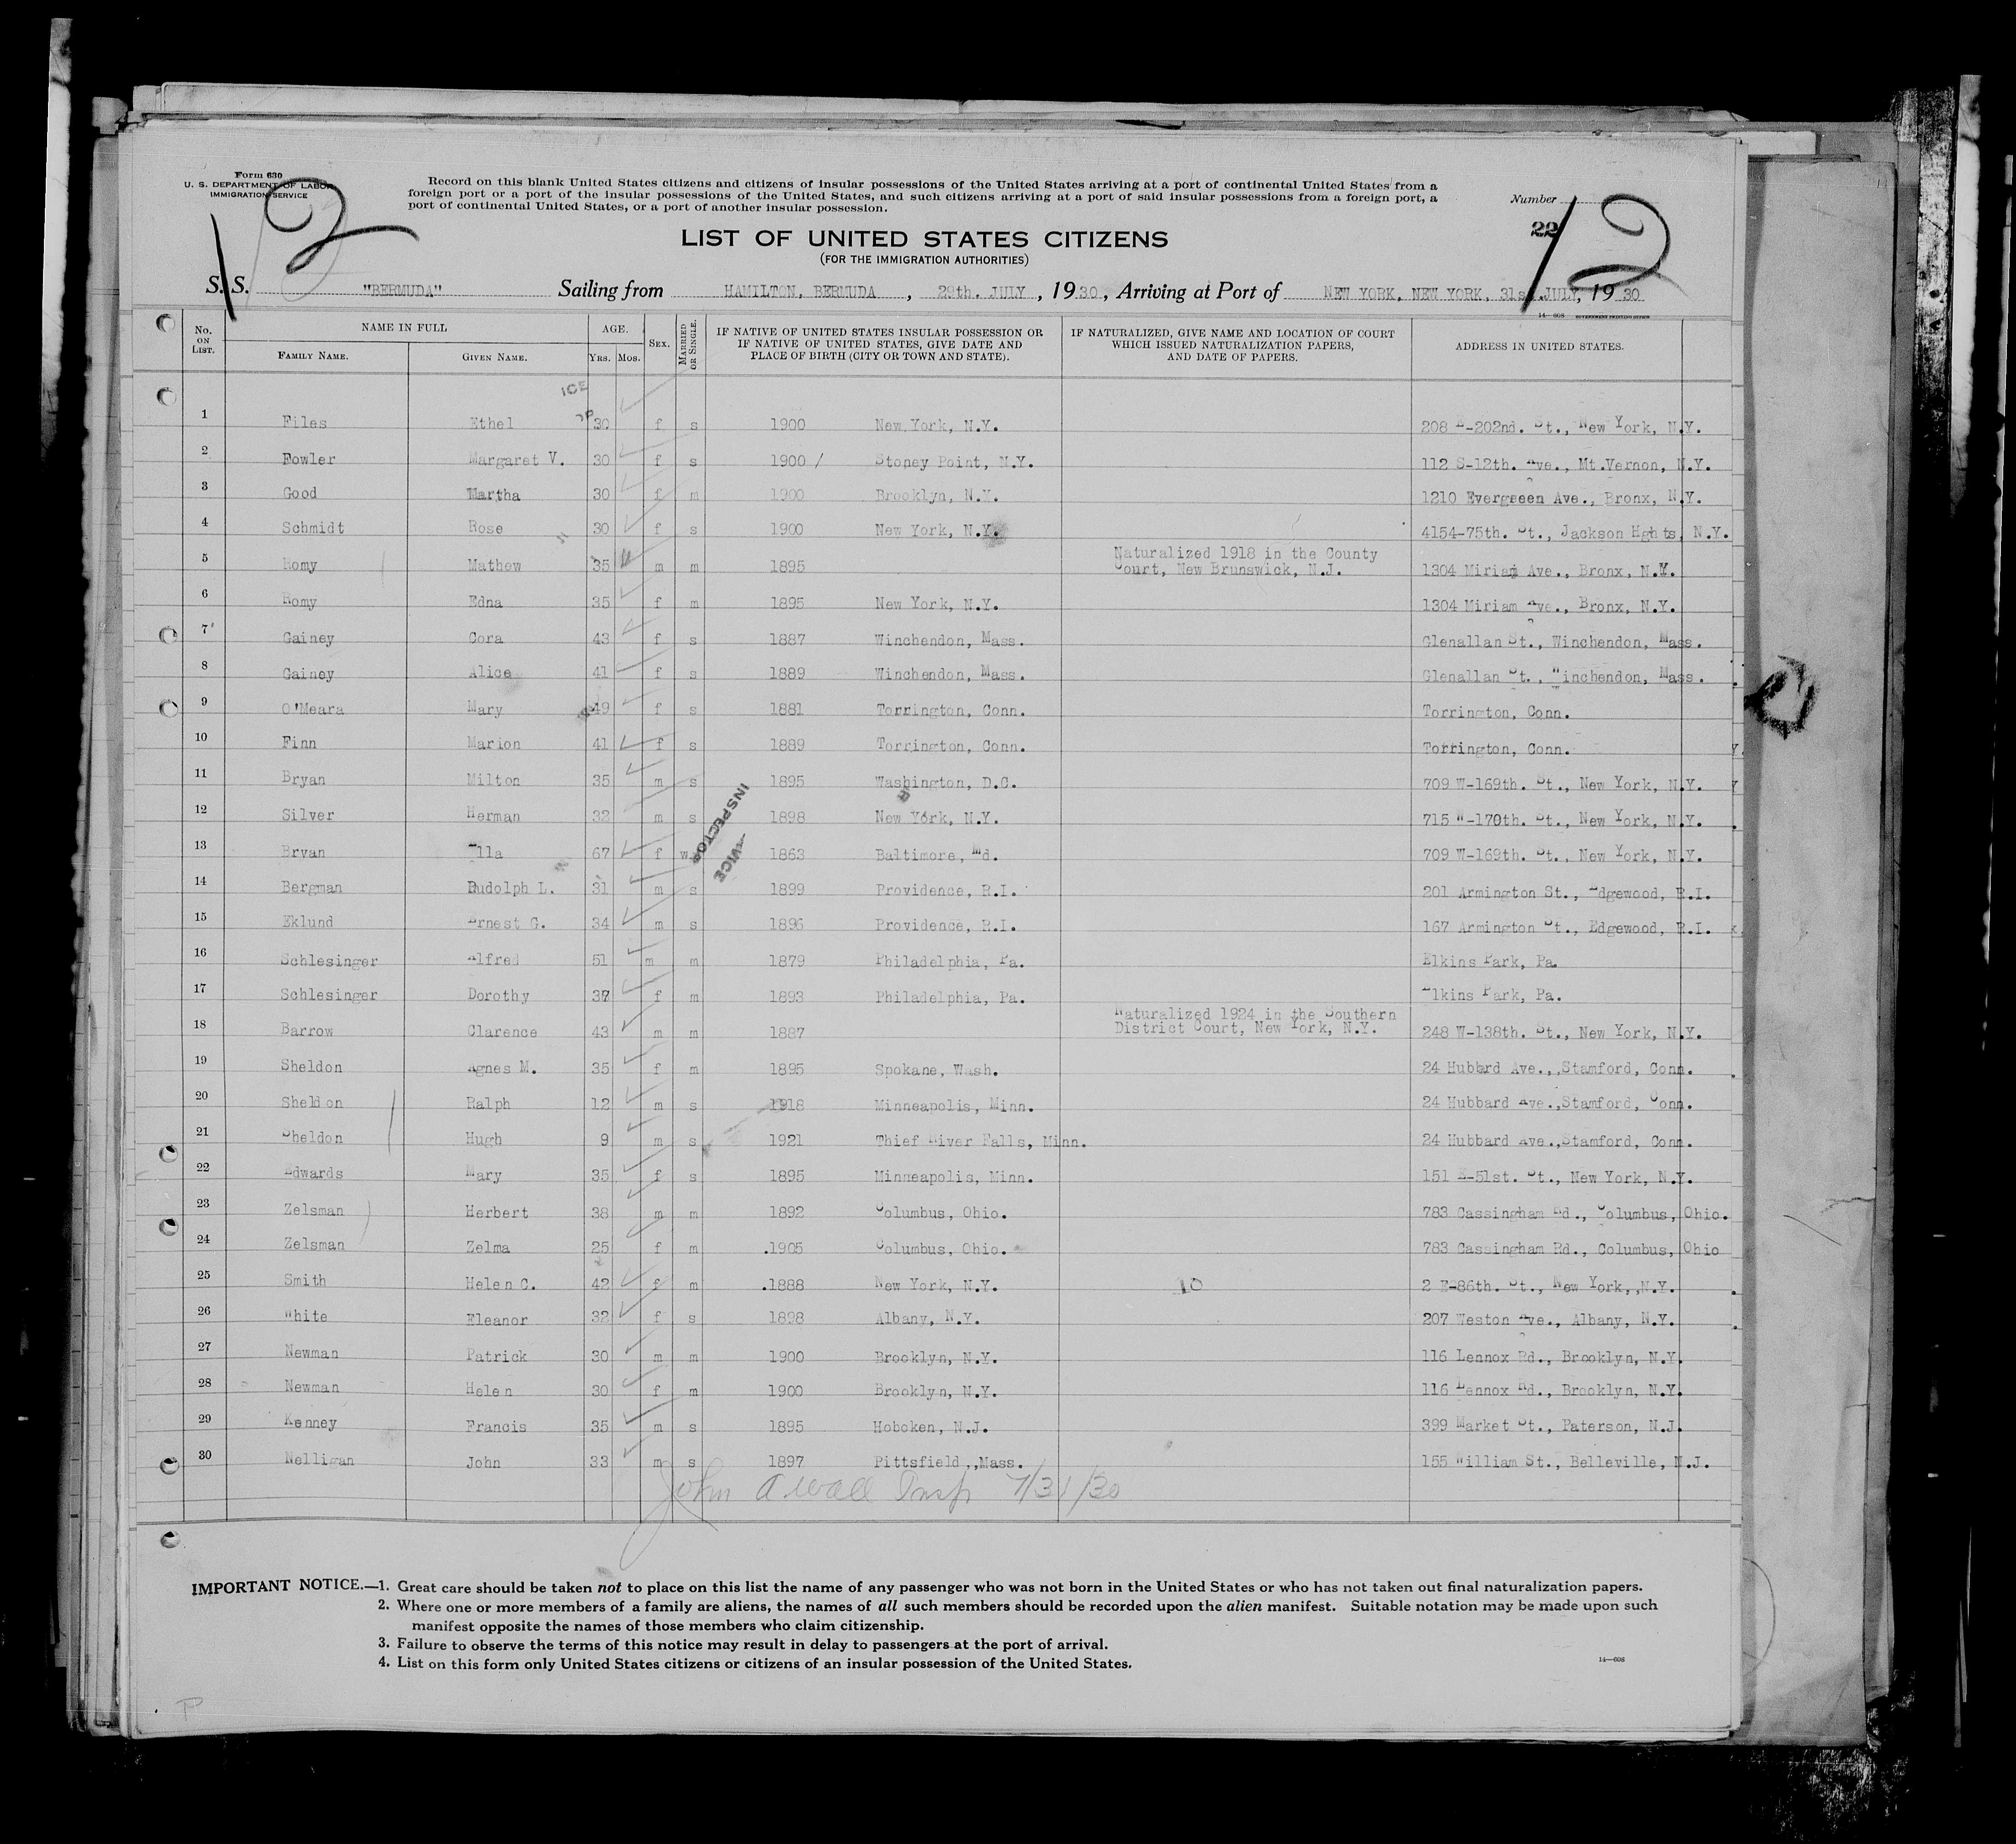 Form 630
U. S. DEPARTMENT OF LABOR
IMMIGRATION SERVICE
12
Record on this blank United States citizens and citizens of insular possessions of the United States arriving at a port of continental United States from a
foreign port or a port of the insular possessions of the United States, and such citizens arriving at a port of said insular possessions from a foreign port, a
port of continental United States, or a port of another insular possession.
Number
22
12
LIST OF UNITED STATES CITIZENS
(FOR THE IMMIGRATION AUTHORITIES)
S. S. "BERMUDA" Sailing from HAMILTON, BERMUDA, 29th. JULY, 1930, Arriving at Port of NEW YORK, NEW YORK, 31st. JULY, 1930
14—608 GOVERNMENT PRINTING OFFICE
No. ON LIST. NAME IN FULL FAMILY NAME. GIVEN NAME. AGE. YRS. MOS. SEX. MARRIED OR SINGLE. IF NATIVE OF UNITED STATES INSULAR POSSESSION OR IF NATIVE OF UNITED STATES, GIVE DATE AND PLACE OF BIRTH (CITY OR TOWN AND STATE). IF NATURALIZED, GIVE NAME AND LOCATION OF COURT WHICH ISSUED NATURALIZATION PAPERS, AND DATE OF PAPERS. ADDRESS IN UNITED STATES.
1 Files Ethel 30 f s 1900 New York, N.Y. 208 E-202nd. St., New York, N.Y.
2 Fowler Margaret V. 30 f s 1900 Stoney Point, N.Y. 112 S-12th. Ave., Mt.Vernon, N.Y.
3 Good Martha 30 f m 1900 Brooklyn, N.Y. 1210 Evergeeen Ave., Bronx, N.Y.
4 Schmidt Rose 30 f s 1900 New York, N.Y. 4154-75th. St., Jackson Hghts, N.Y.
5 Romy Mathew 35 m m 1895 Naturalized 1918 in the County Court, New Brunswick, N.J. 1304 Miriam Ave., Bronx, N.Y.
6 Romy Edna 35 f m 1895 New York, N.Y. 1304 Miriam Ave., Bronx, N.Y.
7 Gainey Cora 43 f s 1887 Winchendon, Mass. Glenallan St., Winchendon, Mass.
8 Gainey Alice 41 f s 1889 Winchendon, Mass. Glenallan St., Winchendon, Mass.
9 O'Meara Mary 49 f s 1881 Torrington, Conn. Torrington, Conn.
10 Finn Marion 41 f s 1889 Torrington, Conn. Torrington, Conn.
11 Bryan Milton 35 m s 1895 Washington, D.C. 709 W-169th. St., New York, N.Y.
12 Silver Herman 32 m s 1898 New York, N.Y. 715 W-170th. St., New York, N.Y.
13 Bryan Ella 67 f w 1863 Baltimore, Md. 709 W-169th. St., New York, N.Y.
INSPECTOR
14 Bergman Rudolph L. 31 m s 1899 Providence, R.I. 201 Armington St., Edgewood, R.I.
15 Eklund Ernest G. 34 m s 1896 Providence, R.I. 167 Armington St., Edgewood, R.I.
16 Schlesinger Alfred 51 m m 1879 Philadelphia, Pa. Elkins Park, Pa.
17 Schlesinger Dorothy 37 f m 1893 Philadelphia, Pa. Elkins Park, Pa.
18 Barrow Clarence 43 m m 1887 Naturalized 1924 in the Southern District Court, New York, N.Y. 248 W-138th. St., New York, N.Y.
19 Sheldon Agnes M. 35 f m 1895 Spokane, Wash. 24 Hubbrd Ave.,,Stamford, Conn.
20 Sheldon Ralph 12 m s 1918 Minneapolis, Minn. 24 Hubbard Ave.,Stamford, Conn.
21 Sheldon Hugh 9 m s 1921 Thief River Falls, Minn. 24 Hubbard Ave.,Stamford, Conn.
22 Edwards Mary 35 f s 1895 Minneapolis, Minn. 151 E-51st. St., New York, N.Y.
23 Zelsman Herbert 38 m m 1892 Columbus, Ohio. 783 Cassingham Rd., Columbus, Ohio.
24 Zelsman Zelma 25 f m .1905 Columbus, Ohio. 783 Cassingham Rd., Columbus, Ohio
25 Smith Helen C. 42 f m .1888 New York, N.Y. 10 2 E-86th. St., New York,,N.Y.
26 White Eleanor 32 f s 1898 Albany, N.Y. 207 Weston Ave., Albany, N.Y.
27 Newman Patrick 30 m m 1900 Brooklyn, N.Y. 116 Lennox Rd., Brooklyn, N.Y.
28 Newman Helen 30 f m 1900 Brooklyn, N.Y. 116 Lennox Rd., Brooklyn, N.Y.
29 Kenney Francis 35 m s 1895 Hoboken, N.J. 399 Market St., Paterson, N.J.
30 Nelligan John 33 m s 1897 Pittsfield,,Mass. 155 William St., Belleville, N.J.
John A Wall Insp 7/31/30
IMPORTANT NOTICE.—1. Great care should be taken not to place on this list the name of any passenger who was not born in the United States or who has not taken out final naturalization papers.
2. Where one or more members of a family are aliens, the names of all such members should be recorded upon the alien manifest. Suitable notation may be made upon such
manifest opposite the names of those members who claim citizenship.
3. Failure to observe the terms of this notice may result in delay to passengers at the port of arrival.
4. List on this form only United States citizens or citizens of an insular possession of the United States.
14—608